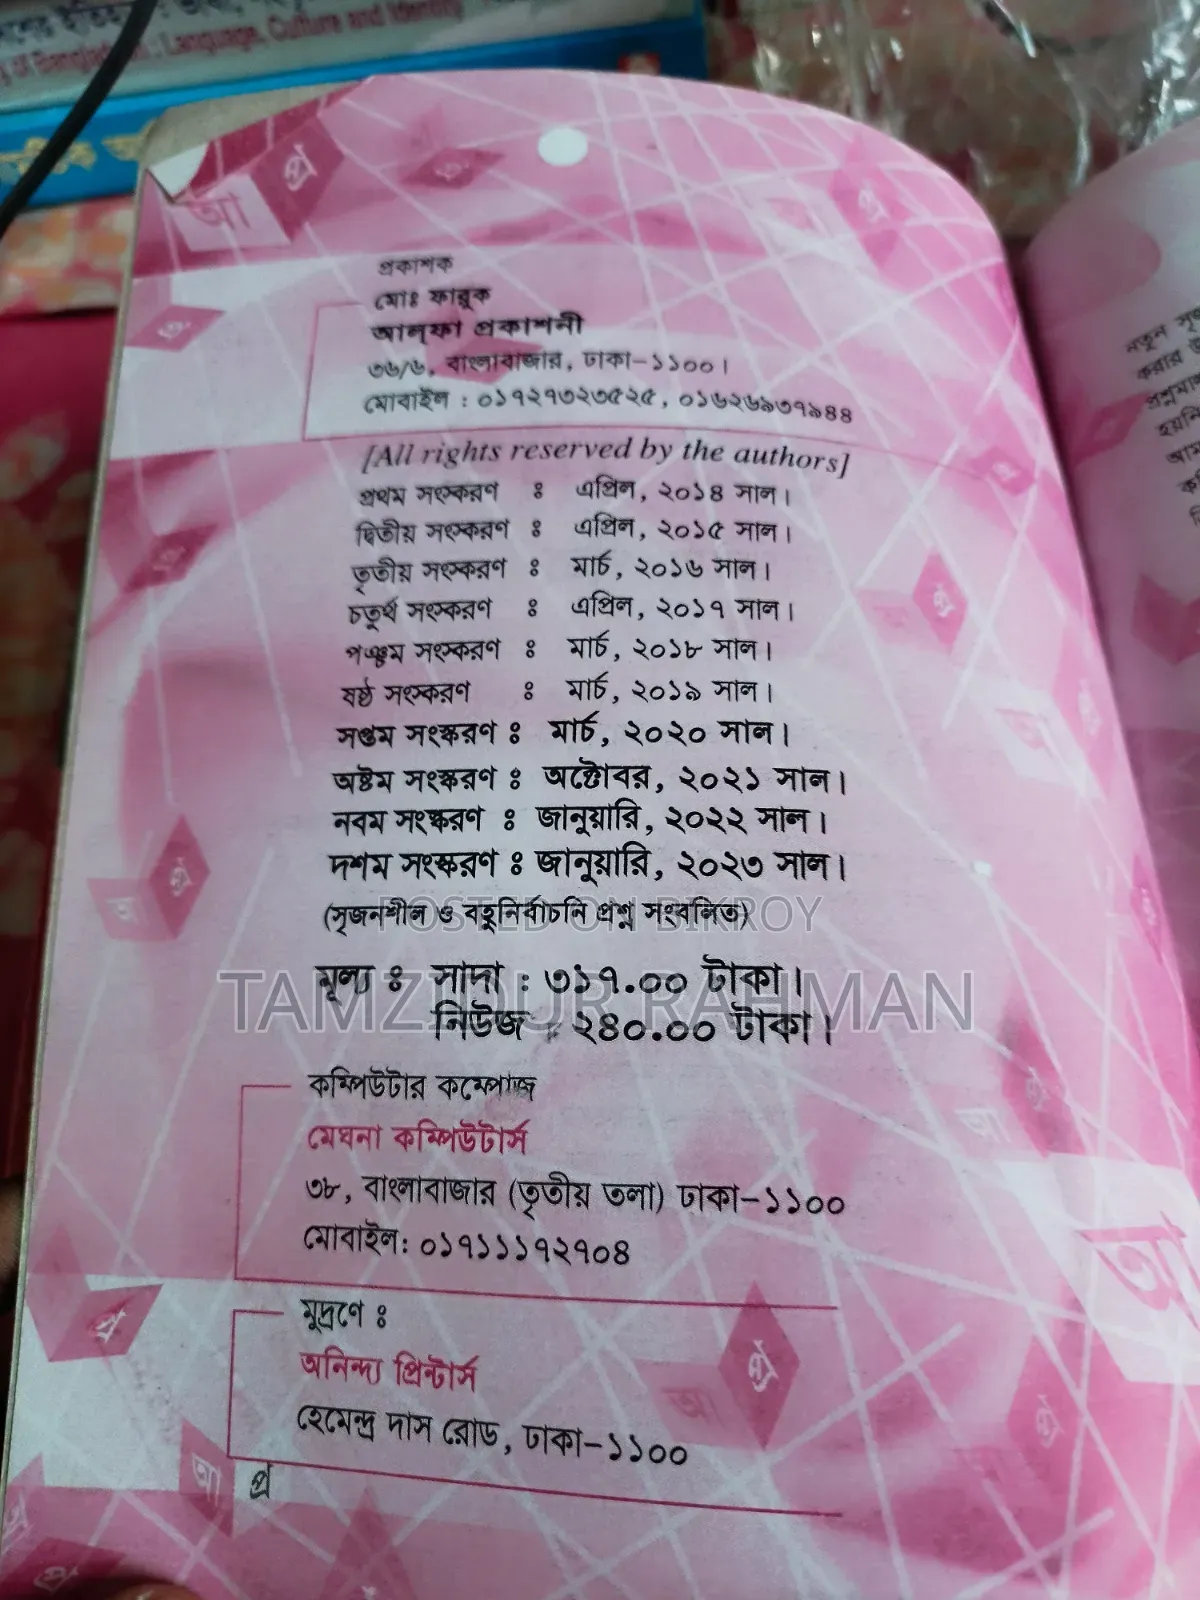 of Bangladesh: Language, Culture and Identity
আ
প্র
প্রকাশক
মোঃ ফারুক
আল্‌ফা প্রকাশনী
৩৬/৬, বাংলাবাজার, ঢাকা-১১০০।
মোবাইল : ০১৭২৭৩২৩৫২৫, ০১৬২৬৯৩৭৯৪৪
[All rights reserved by the authors]
প্রথম সংস্করণ ঃ এপ্রিল, ২০১৪ সাল।
দ্বিতীয় সংস্করণ ঃ এপ্রিল, ২০১৫ সাল।
তৃতীয় সংস্করণ ঃ মার্চ, ২০১৬ সাল।
চতুর্থ সংস্করণ ঃ এপ্রিল, ২০১৭ সাল।
পঞ্চম সংস্করণ ঃ মার্চ, ২০১৮ সাল।
ষষ্ঠ সংস্করণ ঃ মার্চ, ২০১৯ সাল।
সপ্তম সংস্করণ ঃ মার্চ, ২০২০ সাল।
অষ্টম সংস্করণ ঃ অক্টোবর, ২০২১ সাল।
নবম সংস্করণ ঃ জানুয়ারি, ২০২২ সাল।
দশম সংস্করণ ঃ জানুয়ারি, ২০২৩ সাল।
(সৃজনশীল ও বহুনির্বাচনি প্রশ্ন সংবলিত)
POSTED ON BIKROY
মূল্য ঃ সাদা : ৩১৭.০০ টাকা।
TAMZIDUR RAHMAN
নিউজ : ২৪০.০০ টাকা।
কম্পিউটার কম্পোজ
মেঘনা কম্পিউটার্স
৩৮, বাংলাবাজার (তৃতীয় তলা) ঢাকা-১১০০
মোবাইল: ০১৭১১১৭২৭০৪
মুদ্রণে ঃ
অনিন্দ্য প্রিন্টার্স
হেমেন্দ্র দাস রোড, ঢাকা-১১০০
আ
প্র
নতুন
করার